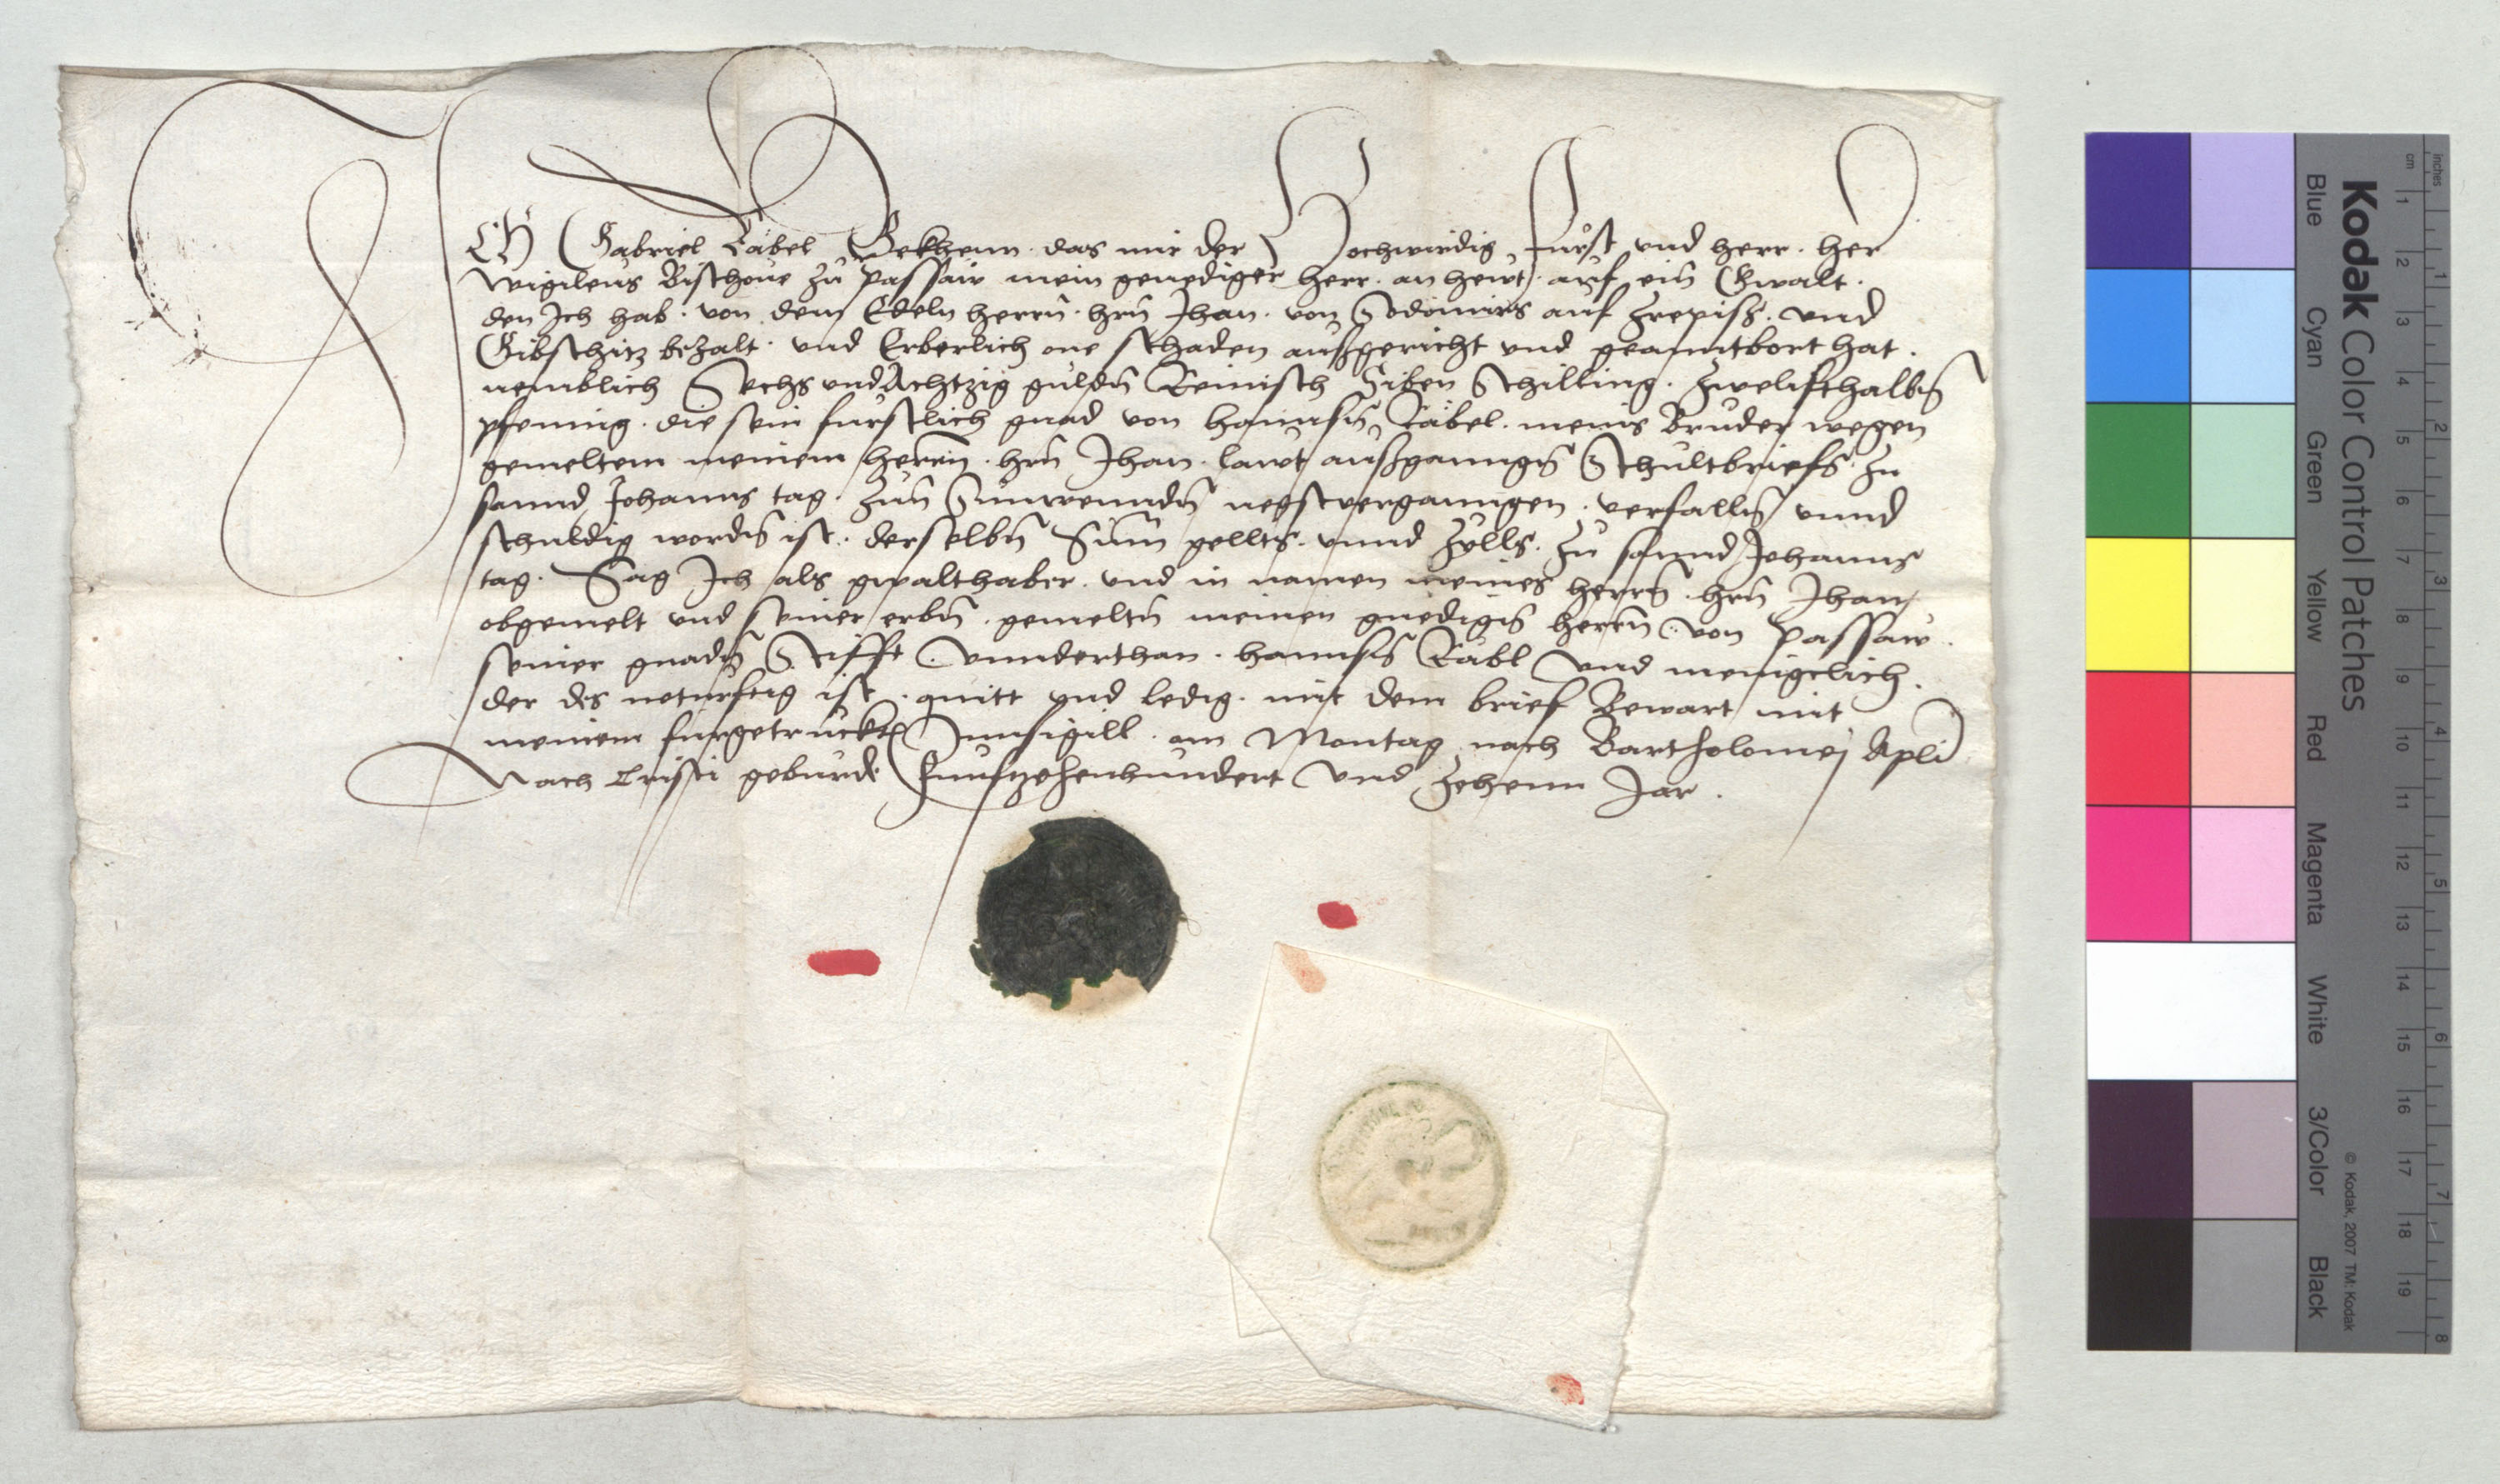 ICH Gabriel Räbel Bekhenn. das mir der Hochwirdig Fürst und herr. her
Wigileus Bischoue zu Passaw mein genediger herr. an hewt. auf ein Gwalt.
den Ich hab. von dem Edeln herrn. hrn Jhan. von auf und
bezalt. und Erberlich one schaden außgericht und geanntbort hat.
nemblich Sechs und Achtzig guldn Reinisch Siben Schilling. Zwelifthalbn
pfenning. die sein furstlich gnad von hannsen Räbel. meins Bruder wegen
gemeltem meinem herrn. hrn Jhan. lawt außganngens Schultbriefs. zu
sannd Johanns tag. zun Sunwenndn negstvergangen. verfalln unnd
schuldig wordn ist. derselbn Sumn gellts. unnd Zolls. zu sannd Johanns
tag. Sag Ich als gwalthaber. und in namen meines herrn. hrn Jhan
obgemelt und seiner erbn. gemeltn meinen gnedign herrn. von Passaw.
seiner gnadn Stifft. Unnderthan. hannsn Räbl und menigclich.
der des noturftig ist. quitt und ledig. mit dem brief Bewart mit
meinem furgetruckten Innsigill. am Montag nach Bartholomej Apli
Nach Cristi geburde Funfzehenhundert und Zehenn Jar.
Kodak Color Control Patches
Blue Cyan Green Yellow Red Magenta White 3/Color Black
© Kodak, 2007 TM: Kodak
cm 1 2 3 4 5 6 7 8 9 10 11 12 13 14 15 16 17 18 19
inches 1 2 3 4 5 6 7 8